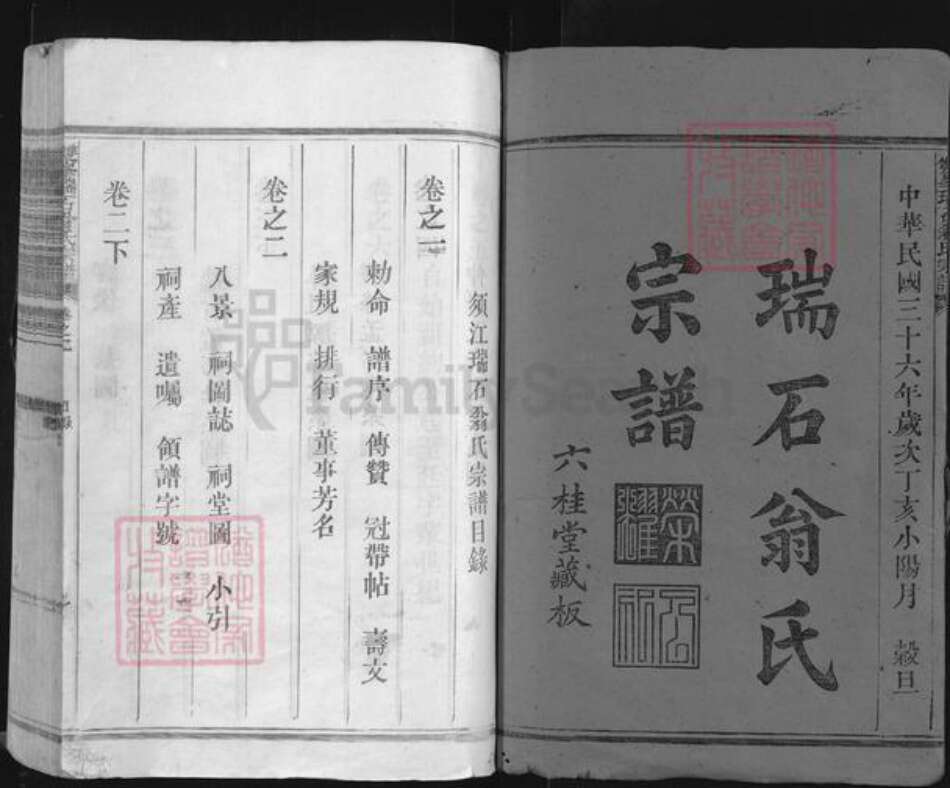 中華民國三十六年歲次丁亥小陽月 穀旦
瑞石翁氏
宗譜
六桂堂藏板
須江瑞石翁氏宗譜目錄
卷之一
勅命 譜序 傳贊 冠帶帖 壽文
家規 排行 董事芳名
卷之二
八景 祠圖誌 祠堂圖 小引
祠產 遺囑 領譜字號
卷二下
FamilySearch